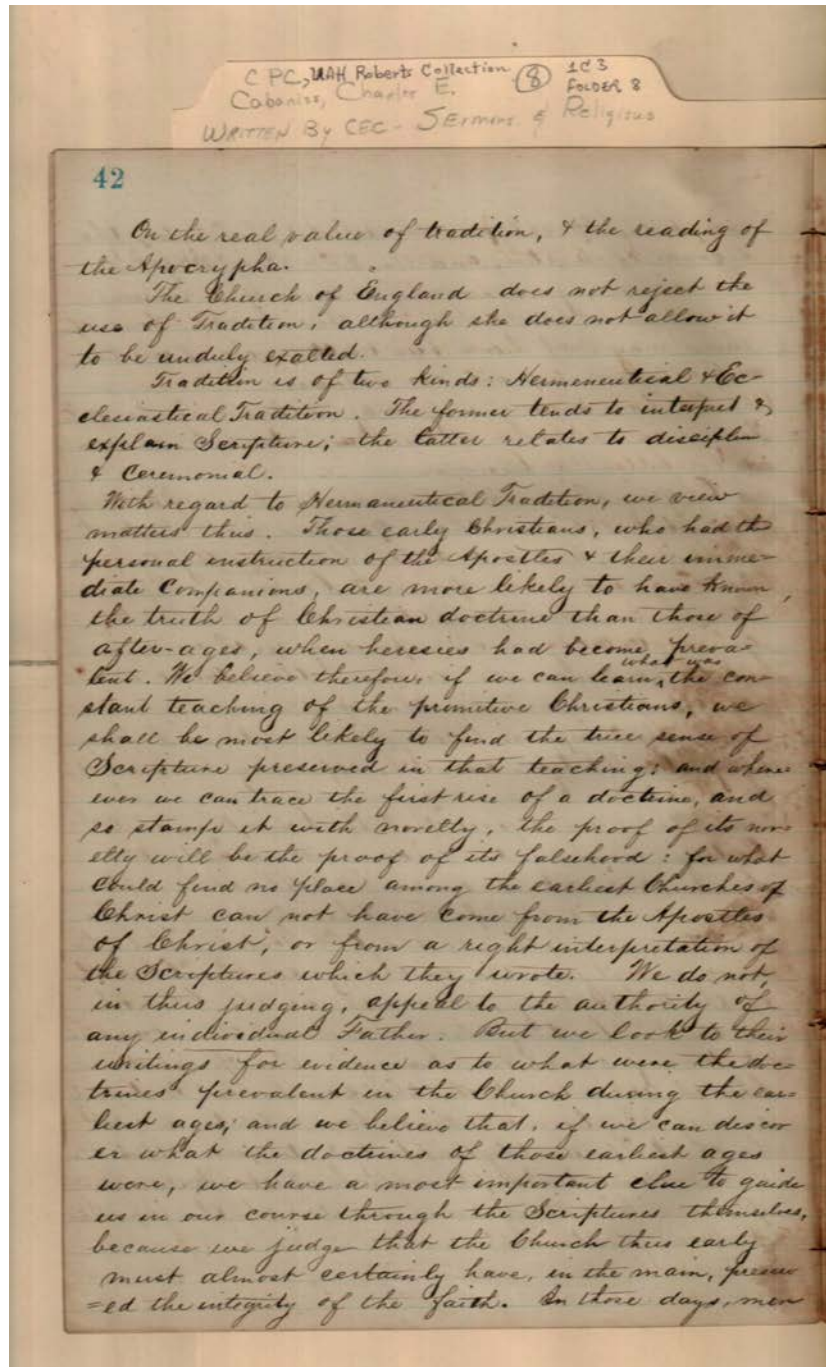 CPC, UAH Roberts Collection 8 1C3
Cabaniss, Charles E. FOLDER 8
WRITTEN BY CEC - SERMONS & Religious
42
On the real value of tradition, & the reading of
the Apocrypha.
The Church of England does not reject the
use of Tradition, although she does not allow it
to be unduly exalted.
Tradition is of two kinds: Hermeneutical & Ec-
clesiastical Tradition. The former tends to interpret &
explain Scripture; the latter relates to disciplin
& Ceremonial.
With regard to Hermaneutical Tradition, we view
matters thus. Those early Christians, who had th
personal instruction of the Apostles & their imme-
diate Companions, are more likely to have known,
the truth of Christian doctrine than those of
after-ages, when heresies had become preva-
lent. We believe therefore, if we can learn what was the con-
stant teaching of the primitive Christians, we
shall be most likely to find the true sense of
Scripture preserved in that teaching: and where-
ever we can trace the first rise of a doctrine, and
so stamp it with novelty, the proof of its nov-
elty will be the proof of its falsehood: for what
could find no place among the earliest Churches of
Christ can not have come from the Apostles
of Christ, or from a right interpretation of
the Scriptures which they wrote. We do not,
in thus judging, appeal to the authority of
any individual Father. But we look to their
writings for evidence as to what were the doc-
trines prevalent in the Church during the ear-
liest ages; and we believe that, if we can discov
er what the doctrines of those earliest ages
were, we have a most important clue to guide
us in our course through the Scriptures themselves,
because we judge that the Church thus early
must almost certainly have, in the main, preserv
=ed the integrity of the faith. In those days, men